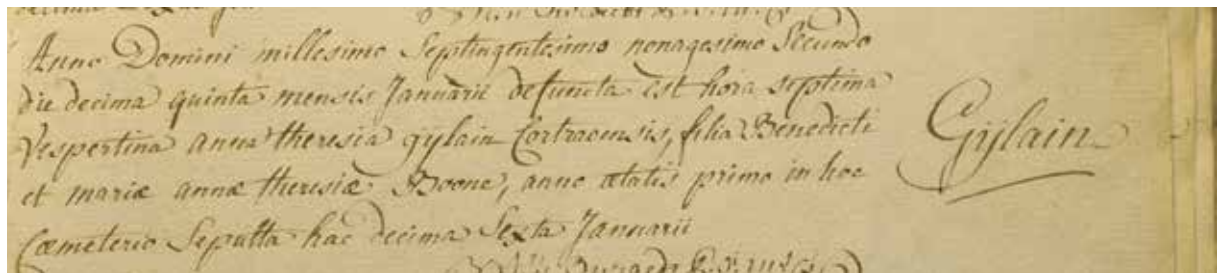 Anno Domini millesimo Septingentesimo nonagesimo Secundo
die decima quinta mensis Januarii defuncta est hora septima
Vespertina anna theresia gijlain Cortracensis, filia Benedicti
et mariæ annæ theresiæ Boone, anno ætatis primo in hoc
Cœmeterio Sepulta hac decima Sexta Januarii
Gijlain